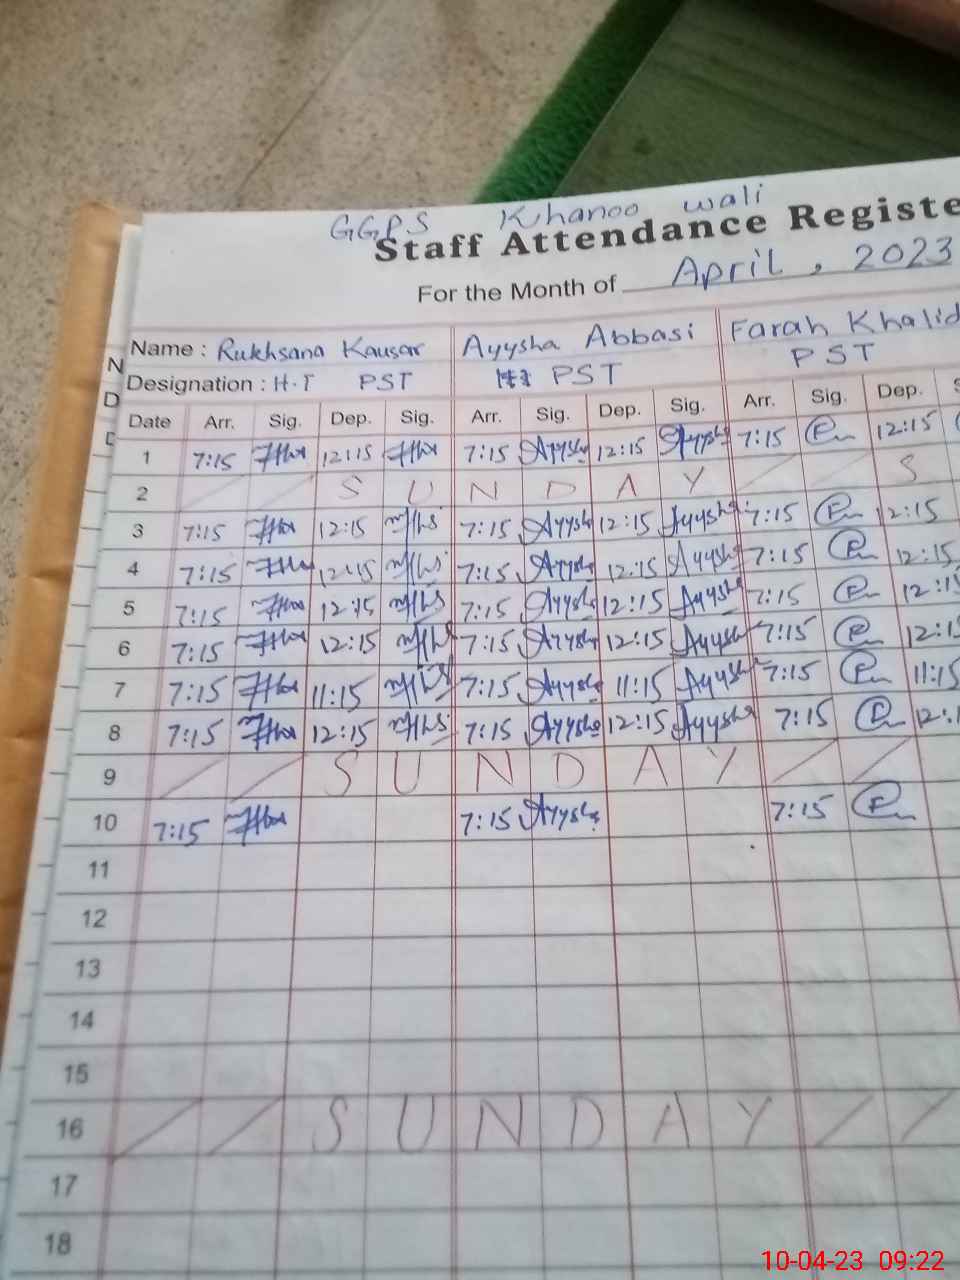 GGPS Khanoo wali
Staff Attendance Registe
For the Month of April, 2023
Name : Rukhsana Kausar Ayysha Abbasi Farah Khalid
Designation : H.T PST PST PST
Date Arr. Sig. Dep. Sig. Arr. Sig. Dep. Sig. Arr. Sig. Dep. S
1 7:15 12:15 7:15 Ayysha 12:15 Ayysha 7:15 12:15
2 S U N D A Y S
3 7:15 12:15 7:15 Ayysha 12:15 Ayysha 7:15 12:15
4 7:15 12:15 7:15 Ayysha 12:15 Ayysha 7:15 12:15
5 7:15 12:15 7:15 Ayysha 12:15 Ayysha 7:15 12:15
6 7:15 12:15 7:15 Ayysha 12:15 Ayysha 7:15 12:15
7 7:15 11:15 7:15 Ayysha 11:15 Ayysha 7:15 11:15
8 7:15 12:15 7:15 Ayysha 12:15 Ayysha 7:15 12:1
9 S U N D A Y
10 7:15 7:15 Ayysha 7:15
11
12
13
14
15
16 S U N D A Y
17
18
10-04-23 09:22